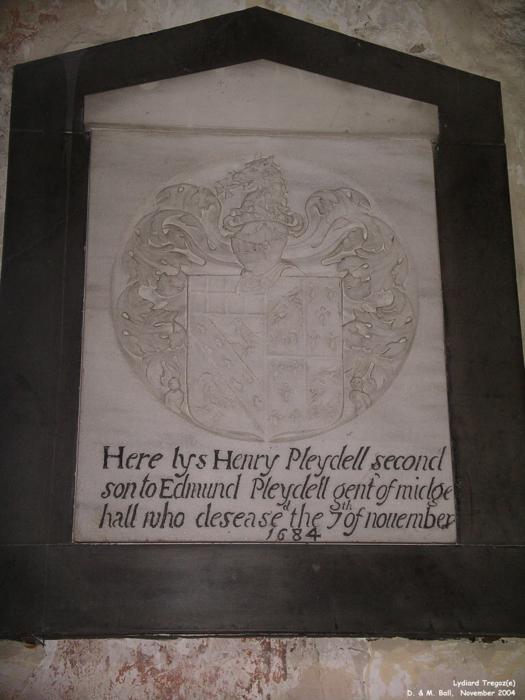 Here lys Henry Pleydell second
son to Edmund Pleydell gent of midge
hall who deseased the 9th of nouember
1684
Lydiard Tregoz(e)
D. & M. Ball, November 2004